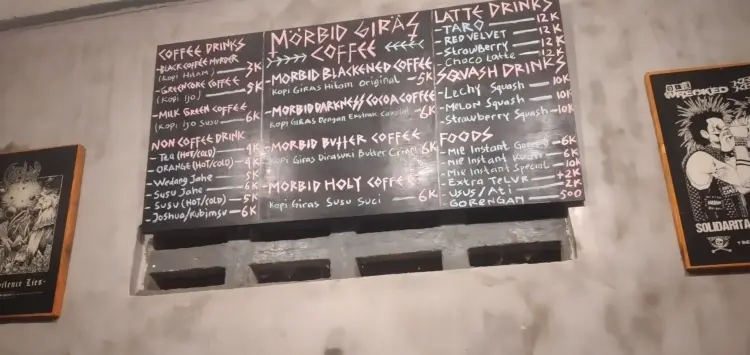 COFFEE DRINKS
-BLACK COFFEE MURDER 3K
(Kopi Hitam)
-GREENCORE COFFEE 5K
(Kopi Ijo)
-MILK GREEN COFFEE 6K
(Kopi Ijo Susu)
NON COFFEE DRINK
-TEA (HOT/COLD) 4K
-ORANGE (HOT/COLD) 4K
-Wedang Jahe 5K
-Susu Jahe 6K
-Susu (HOT/COLD) 5K
-Joshua/Kubimsu 6K
MÖRBID GIRÄS
COFFEE
-MORBID BLACKENED COFFEE
Kopi Giras Hitam Original 5K
-MORBID DARKNESS COCOA COFFEE
Kopi GIRAS Dengan Ekstrak 6K
-MORBID BUTTER COFFEE
Kopi Giras Dirasuki Butter 6K
-MORBID HOLY COFFEE
Kopi Giras Susu Suci 6K
LATTE DRINKS
-TARO 12K
-RED VELVET 12K
-Strawberry 12K
-Choco Latte 12K
SQUASH DRINKS
-Lechy Squash 10K
-Melon Squash 10K
-Strawberry Squash 10K
FOODS
-MIE Instant 6K
-MIE Instant 6K
-MIE Instant Special 10K
-Extra TELUR +2K
-USUS/Ati 2K
-GORENGAN 500
WRECKED
SOLIDARITA